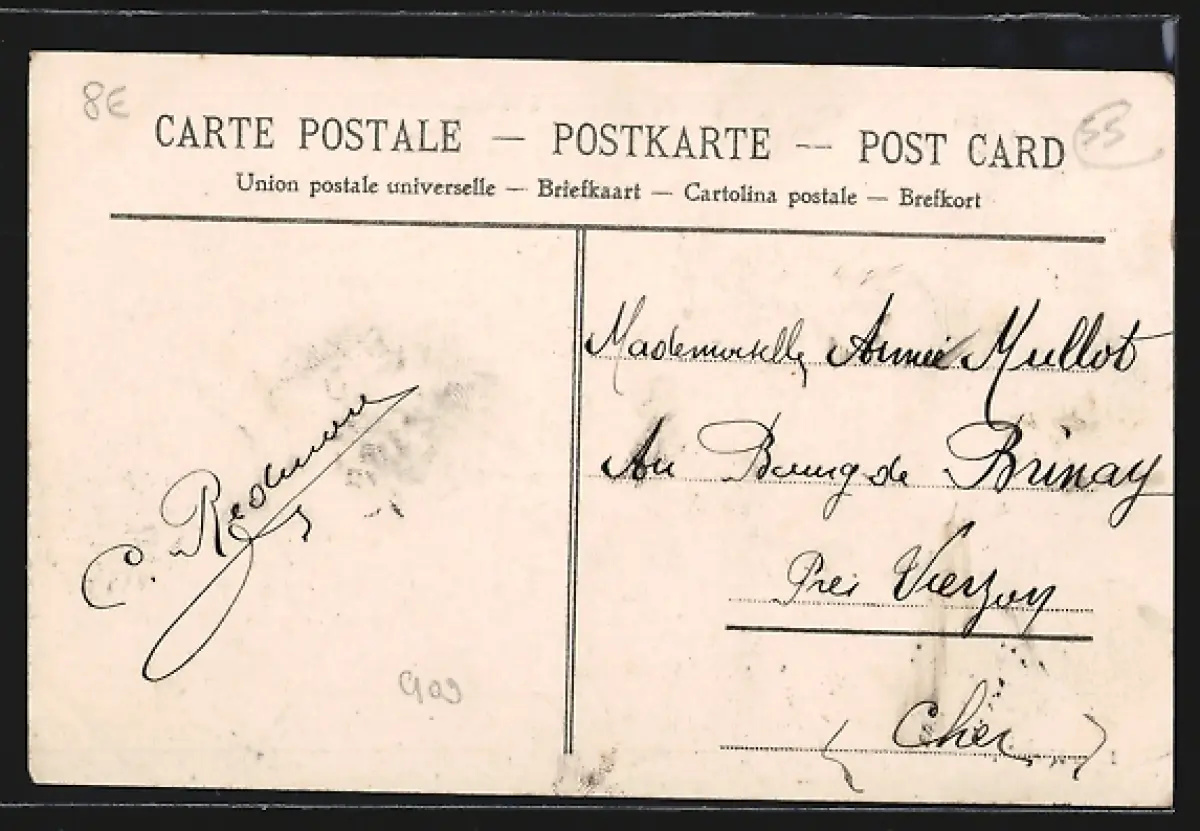 8€
CARTE POSTALE — POSTKARTE -- POST CARD
53
Union postale universelle — Briefkaart — Cartolina postale — Brefkort
Mademoiselle Annie Mullot
Au Bourg de Brinay
Près Vierzon
(Cher)
C.
903